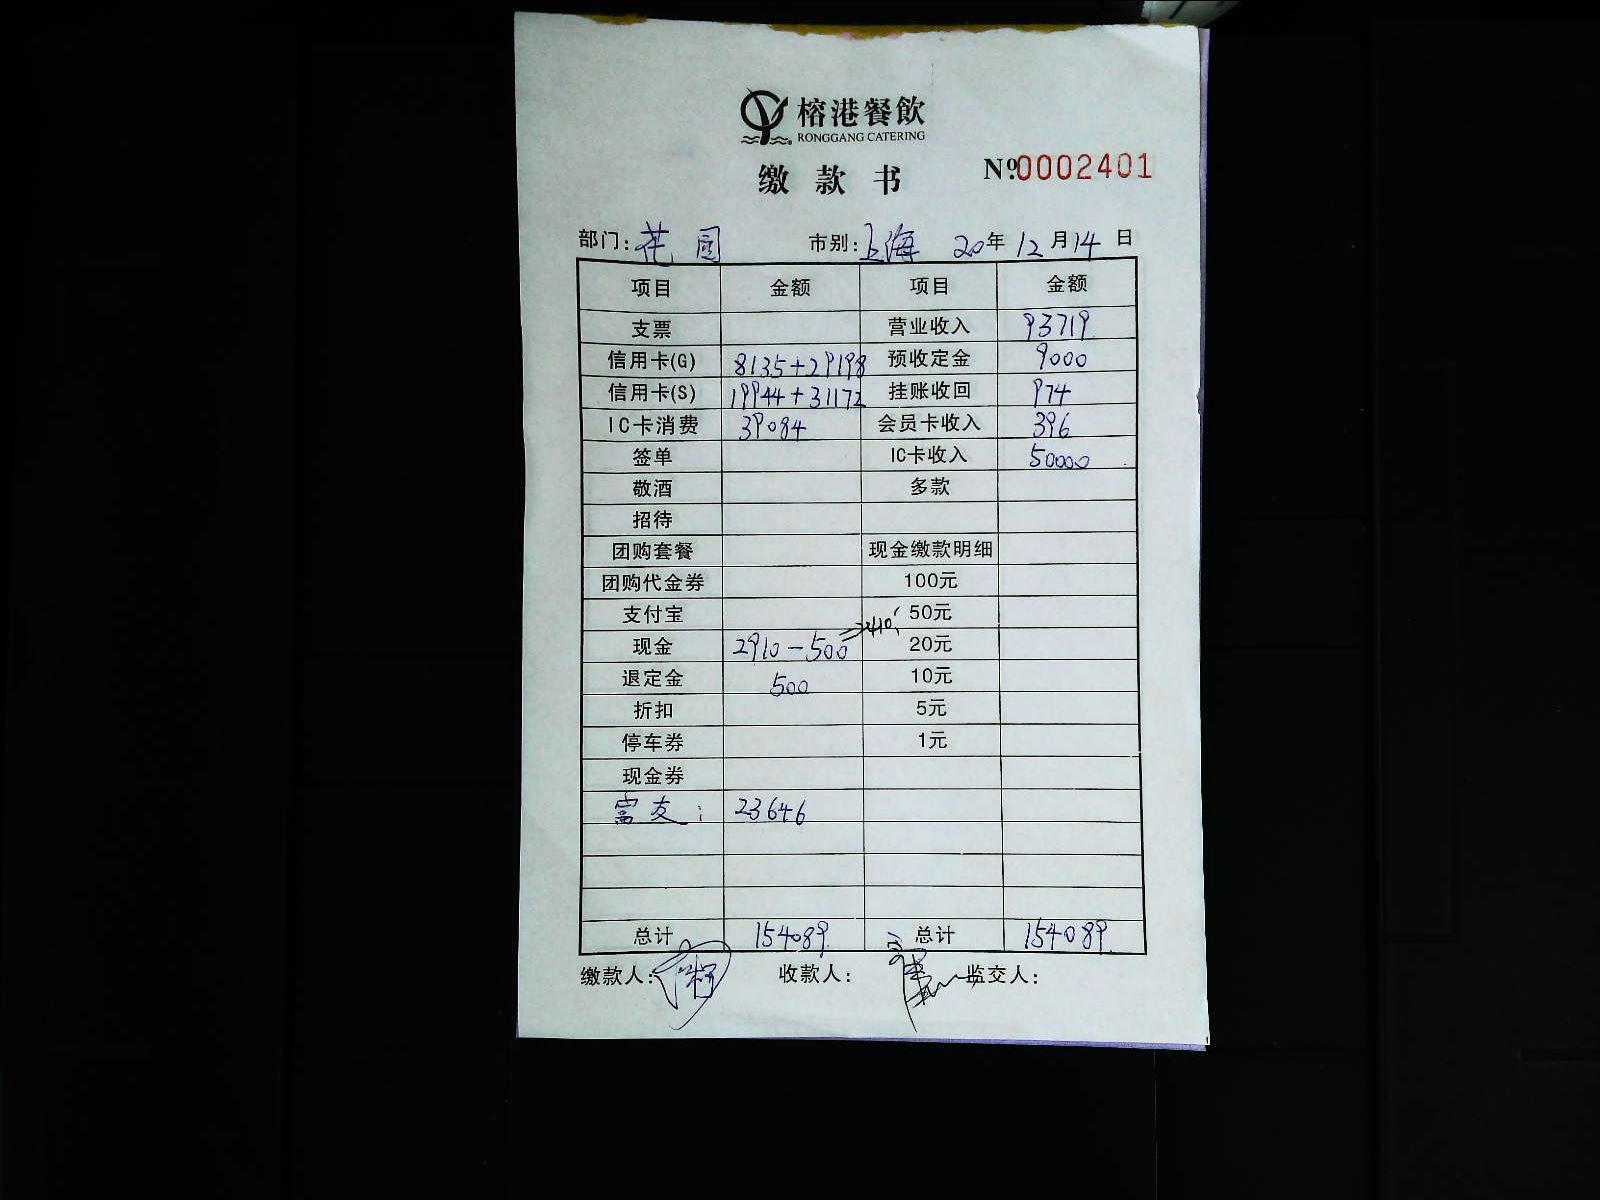 榕港餐飲
RONGGANG CATERING
缴款书
№0002401
部门: 花园 市别: 上海 20年12月14日
项目 金额 项目 金额
支票 营业收入 93719
信用卡(G) 8135+29198 预收定金 9000
信用卡(S) 19944+31172 挂账收回 974
IC卡消费 39084 会员卡收入 396
签单 IC卡收入 50000
敬酒 多款
招待
团购套餐 现金缴款明细
团购代金券 100元
支付宝 50元
现金 2910-500=2410 20元
退定金 500 10元
折扣 5元
停车券 1元
现金券
富友: 23646
总计 154089 总计 154089
缴款人: 收款人: 监交人: